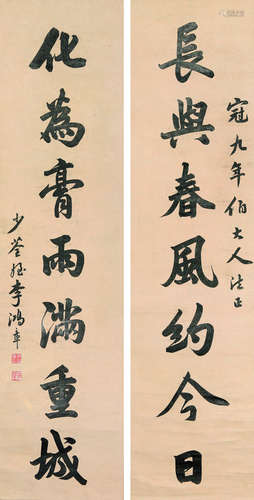 冠九年伯大人法正
長與春風約今日
化為膏雨滿重城
少荃姪李鴻章